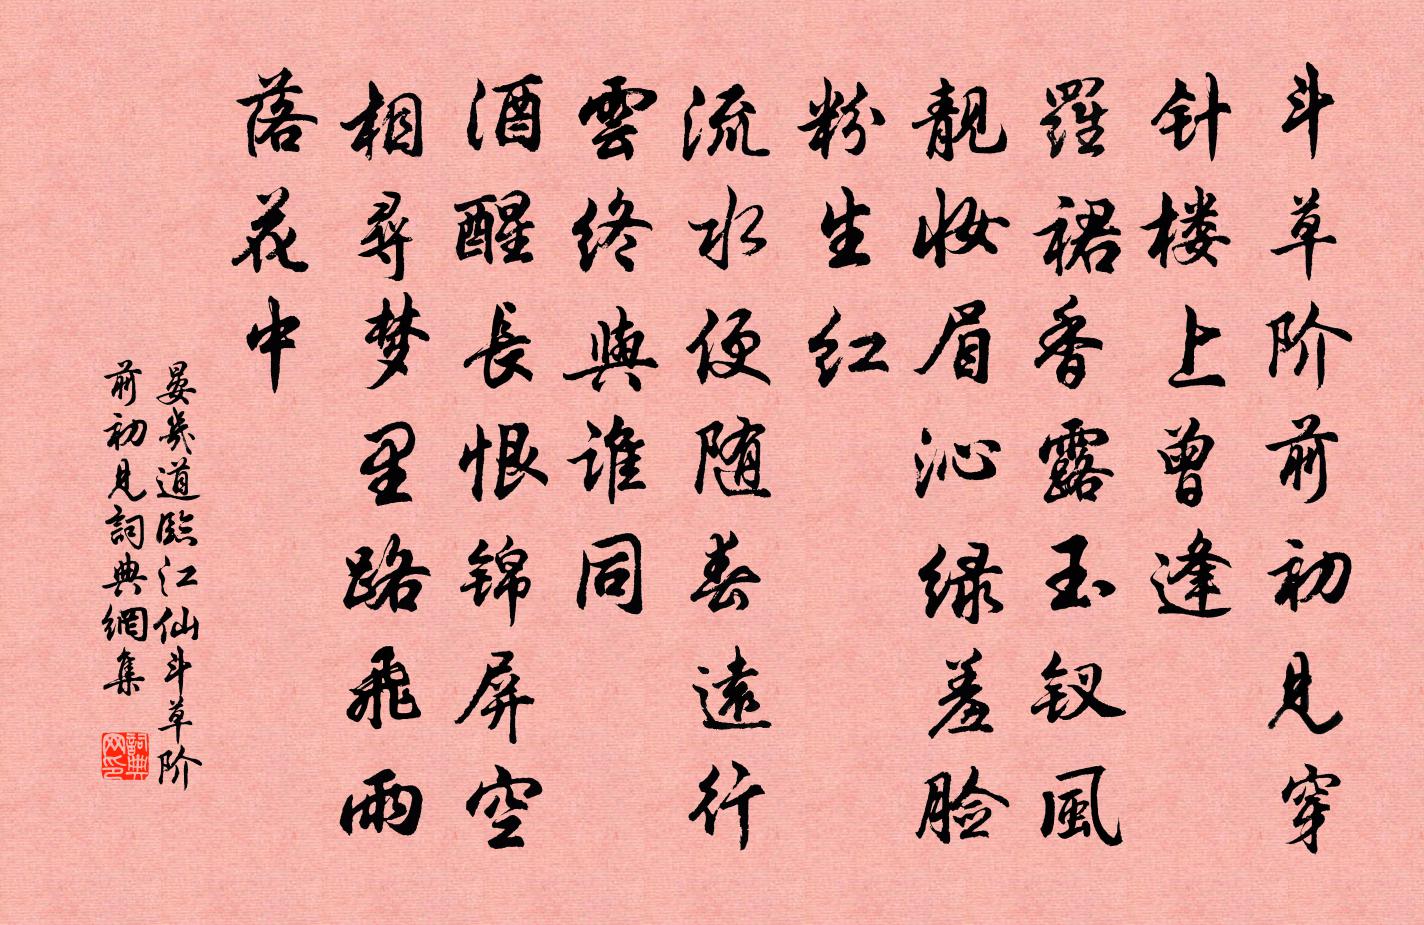 斗草阶前初见穿
针楼上曾逢
羅裙香露玉钗風
靓妆眉沁绿羞脸
粉生红
流水便随春遠行
雲终與谁同
酒醒長恨锦屏空
相尋梦里路飛雨
落花中
晏幾道臨江仙斗草阶
前初見詞典網集
詞典
网印